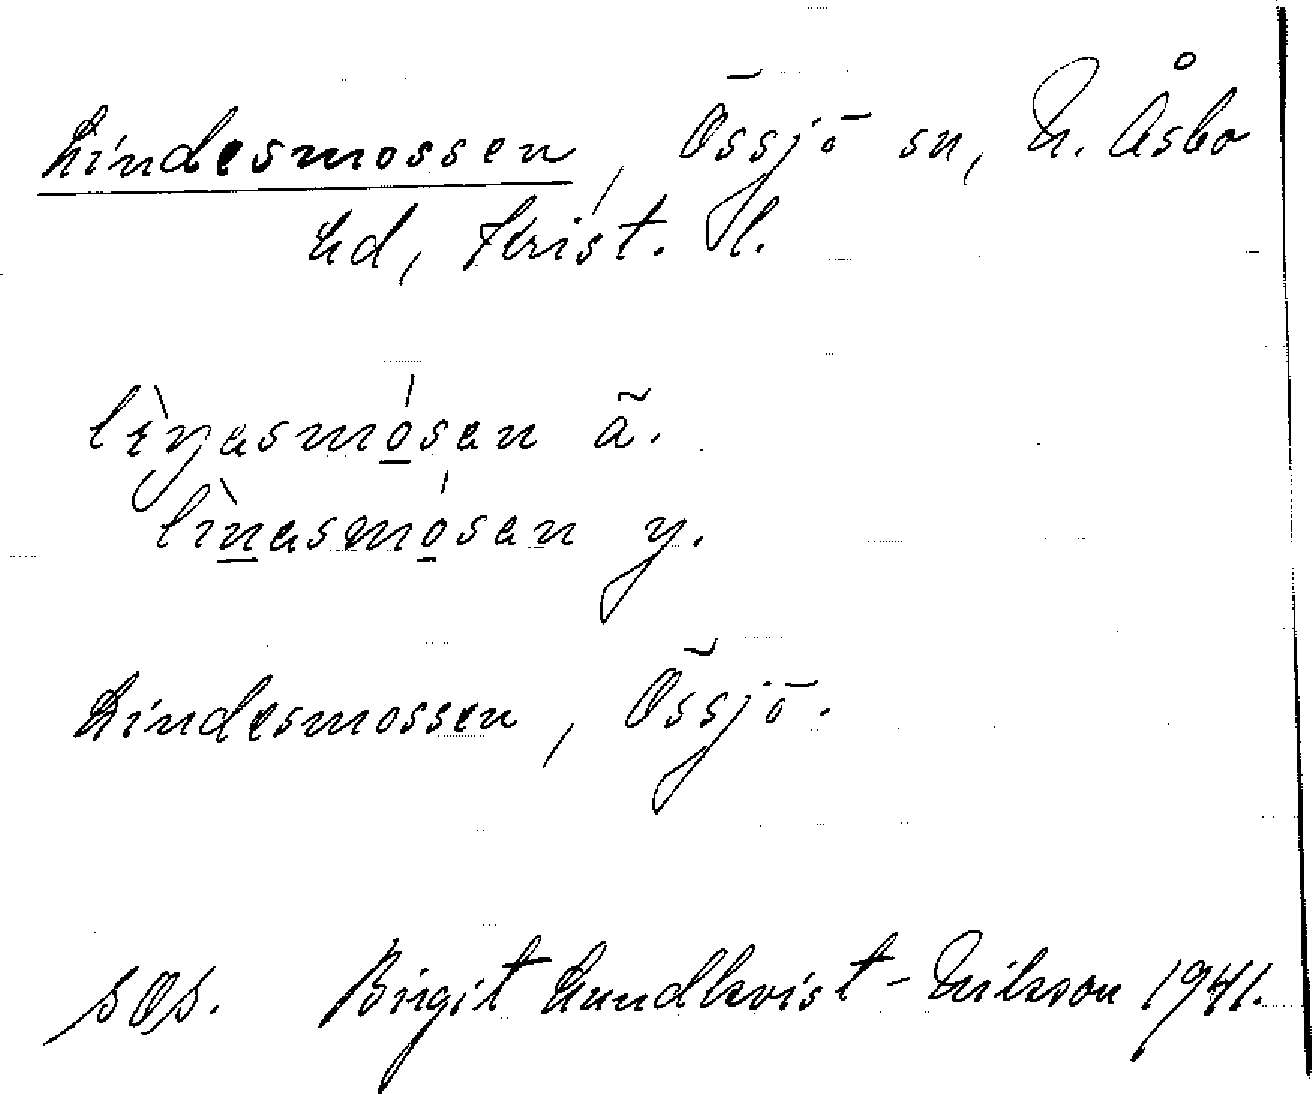 Lindesmossen, Össjö sn, N. Åsbo
hd, Krist. l.
lìŋasmósan ä.
lìnasmósan y.
Lindesmossen, Össjö.
SOS. Birgit Lundkvist-Nilsson 1941.